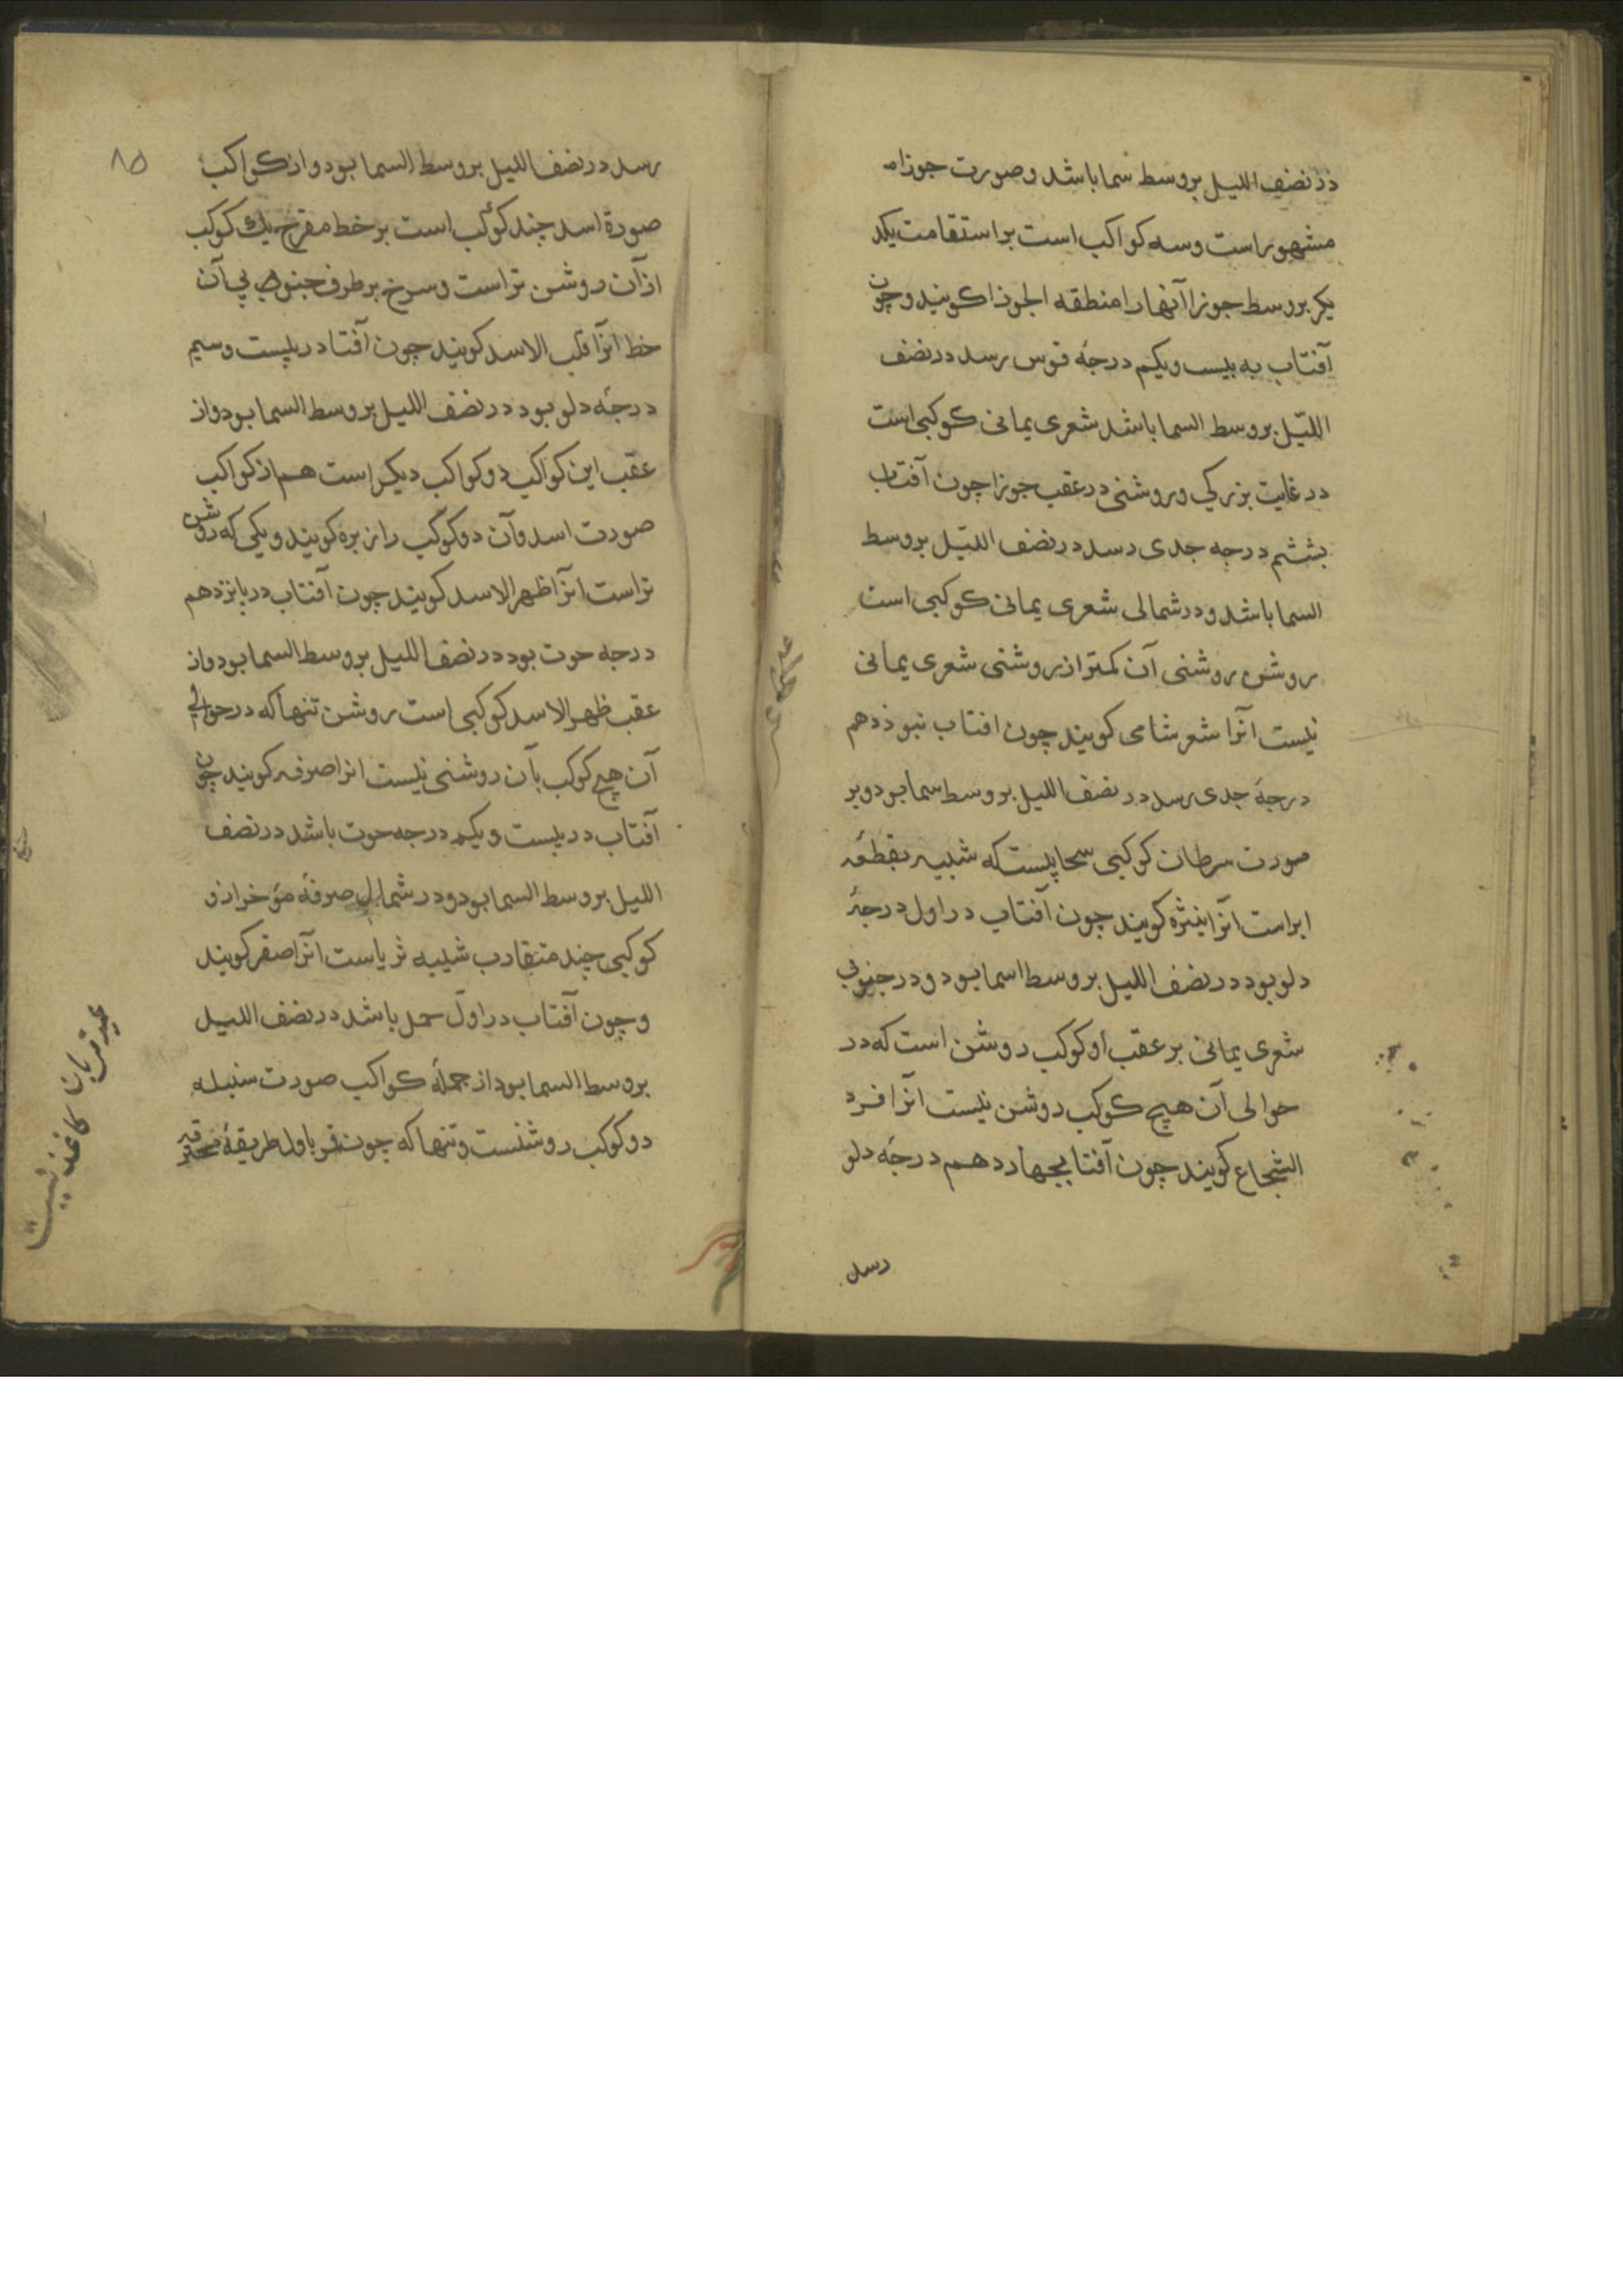 در نصف اللیل بروسط سما باشد و صورت جوزا
مشهور است و سه کواکب است بر استقامت یکد
یکر بروسط جوزا آنها را منطقه الجوزا کویند و چون
آفتاب به بیست ویکم درجهٔ قوس رسد در نصف
اللیّل بروسط السما باشد شعری یمانی کوکبی است
در غایت بزرکی و روشنی در عقب جوزا چون آفتاب
بششم درجه جدی رسد در نصف اللیّل بروسط
السما باشد و در شمالی شعری یمانی کوکبی است
روشن روشنی آن کمتر از روشنی شعری یمانی
نیست انرا شعر شامی کویند چون افتاب نبوذدهم
درجهٔ جدی رسد در نصف اللیل بروسط سما بود و بر
صورت سرطان کوکبی سحابیست که شبیه بقطعه
ابر است آنرا نیثره کویند چون آفتاب در اول درجهٔ
دلو بود در نصف اللیل بروسط اسما بود و در جنوبی
شعری یمانی بر عقب او کوکب روشن است که در
حوالی آن هیچ کوکب روشن نیست آنرا فرد
الشجاع کویند چون آفتاب بجهاردهم درجهٔ دلو
رسد
۸۵
رسد در نصف اللیل بروسط السما بود و از کواکب
صورة اسد چند کوکب است بر خط مقوح یک کوکب
از آن روشن تر است و سرخ بر طرف جنوبی آن
خط آنرا قلب الاسد کویند چون آفتا در بیست و سیم
درجهٔ دلو بود در نصف اللیل بروسط السما بود و از
عقب این کواکب دو کواکب دیکر است هم از کواکب
صورت اسد و آن دو کوکب را زبره کویند و یکی که روشن
تر است انرا ظهر الاسد کویند چون آفتاب در پانزدهم
درجه حوت بود در نصف اللیل بروسط السما بود و از
عقب ظهر الاسد کوکبی است روشن تنها که در حوالی
آن هیچ کوکب بآن روشنی نیست انرا صرفه کویند چون
آفتاب در بیست و یکم درجه حوت باشد در نصف
اللیل بروسط السما بود و در شمال صرفهٔ مؤخر از و
کوکبی چند متقارب شبیه ثریاست آنرا صفر کویند
و چون آفتاب در اوّل حمل باشد در نصف اللیل
بروسط السما بود از جملهٔ کواکب صورت سنبله
دو کوکب روشنست و تنها که چون قمر باول طریقهٔ محترقه
عید قربان کاغذ نیست